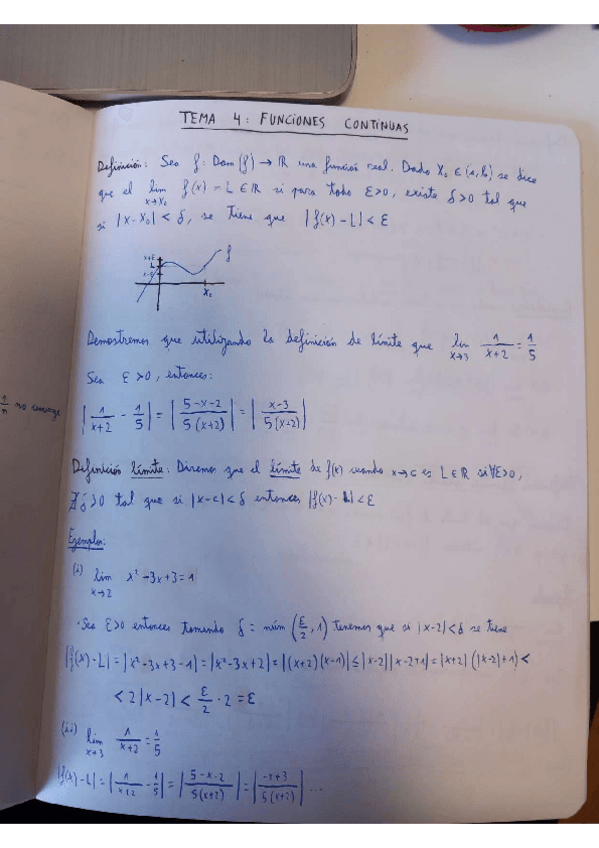 TEMA 4: FUNCIONES CONTINUAS
Definición: Sea f: Dom(f) → ℝ una función real. Dado X₀ ∈ (a,b) se dice
que el lim x→x₀ f(x) = L ∈ ℝ si para todo ε>0, existe δ>0 tal que
si |x-x₀| < δ, se tiene que |f(x)-L| < ε
f
L
x₀
Demostremos que utilizando la definición de límite que lim x→3 1/(x+2) = 1/5
Sea ε>0, entonces:
|1/(x+2) - 1/5| = |(5-x-2)/(5(x+2))| = |(x-3)/(5(x+2))|
1/n no converge
Definición límite: Diremos que el límite de f(x) cuando x→c es L∈ℝ si ∀ε>0,
∃δ>0 tal que si |x-c|<δ entonces |f(x)-L|<ε
Ejemplos:
(i) lim x→2 x²-3x+3=1
· Sea ε>0 entonces tomando δ = mín(ε/2, 1) tenemos que si |x-2|<δ se tiene
|f(x)-L| = |x²-3x+3-1| = |x²-3x+2| = |(x+2)(x-1)| ≤ |x-2||x-2+1| = |x+2|(|x-2|+1) <
< 2|x-2| < ε/2 · 2 = ε
(ii) lim x→3 1/(x+2) = 1/5
|f(x)-L| = |1/(x+2) - 1/5| = |(5-x-2)/(5(x+2))| = |(-x+3)/(5(x+2))| ...